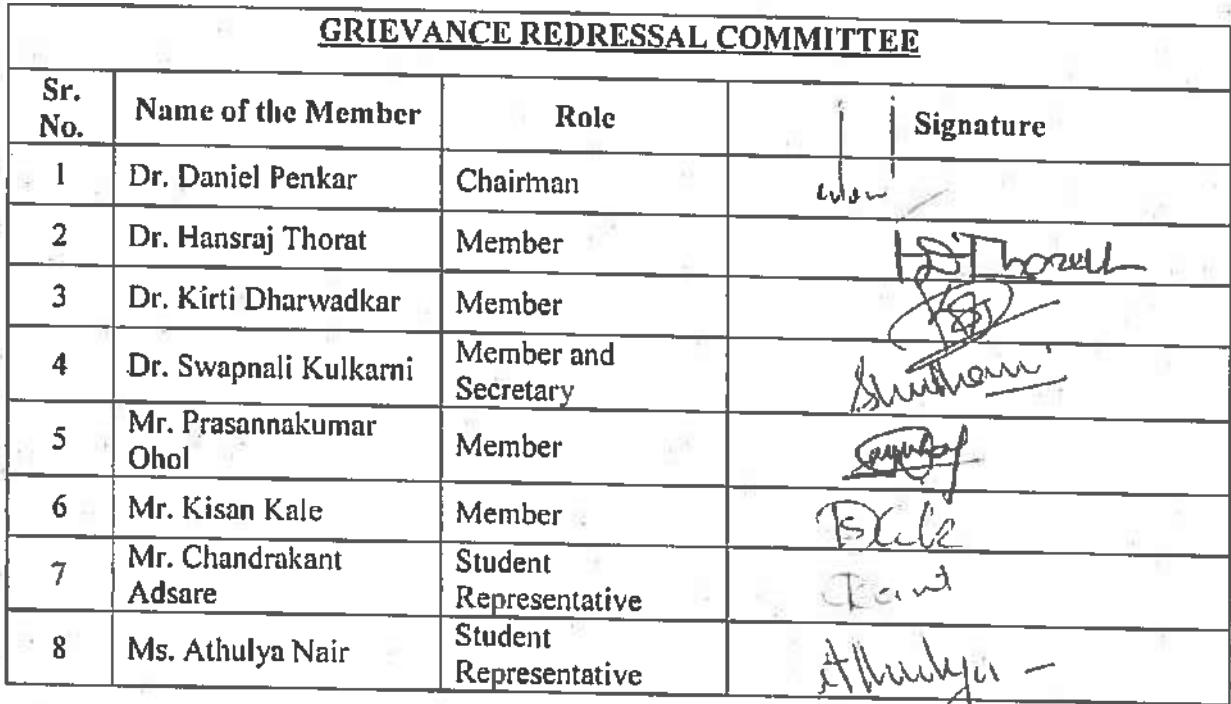 GRIEVANCE REDRESSAL COMMITTEE
Sr. No. Name of the Member Role Signature
1 Dr. Daniel Penkar Chairman
2 Dr. Hansraj Thorat Member
3 Dr. Kirti Dharwadkar Member
4 Dr. Swapnali Kulkarni Member and Secretary
5 Mr. Prasannakumar Ohol Member
6 Mr. Kisan Kale Member
7 Mr. Chandrakant Adsare Student Representative
8 Ms. Athulya Nair Student Representative Athulya